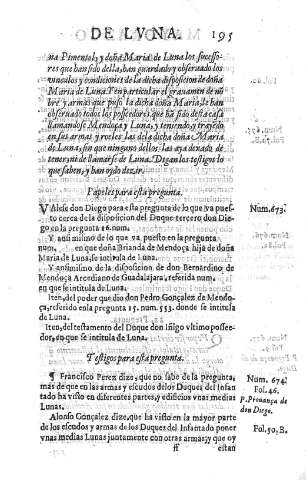 DE LVNA. 195
na Pimentel, y doña Maria de Luna los successo-
res que han sido della, han guardado y observado los
vinculos y condiciones de la dicha disposicion de doña
Maria de Luna. Y en particular el grauamen de nō
bre y armas que puso la dicha doña Maria, le han
obseruado todos los posseedores que ha sido desta casa
llamandose Mendoça y Luna, y teniendo, y trayedo
en sus armas y roeles las de la dicha doña Maria
de Luna, sin que ninguno dellos las aya dexado de
tener, ni de llamarse de Luna. Digan los testigos lo
que saben, y han oydo dezir.
Papeles para esta pregunta.
Valese don Diego para esta pregunta de lo que va pue-
sto cerca de la disposicion del Duque tercero don Die-
go en la pregunta 16. num.
Num. 673.
Y ansimismo de lo que va puesto en la pregunta
num. en que doña Brianda de Mendoça hija de doña
Maria de Luna, se intitula de Luna.
Y ansimismo de la disposicion de don Bernardino de
Mendoça Arcediano de Guadalajara, referida num.
en que se intitula de Luna.
Iten, del poder que dio don Pedro Gonçalez de Mendo-
ça, referido en la pregunta 15. num. 553. donde se intitula
de Luna.
Iten, del testamento del Duque don Iñigo vltimo posse-
edor, en que se intitula de Luna.
Testigos para esta pregunta.
¶ Francisco Perez dize, que no sabe de la pregunta,
mas de que en las armas y escudos de los Duques del Infan
tado ha visto en diferentes partes, y edificios vnas medias
Lunas.
Num. 674.
Fol. 46.
p. Prouança de
don Diego.
Alonso Gonçalez dize, que ha visto en la mayor parte
de los escudos y armas de los Duques del Infantado poner
vnas medias Lunas juntamente con otras armas; y que oy
Fol. 50, B.
ff estan